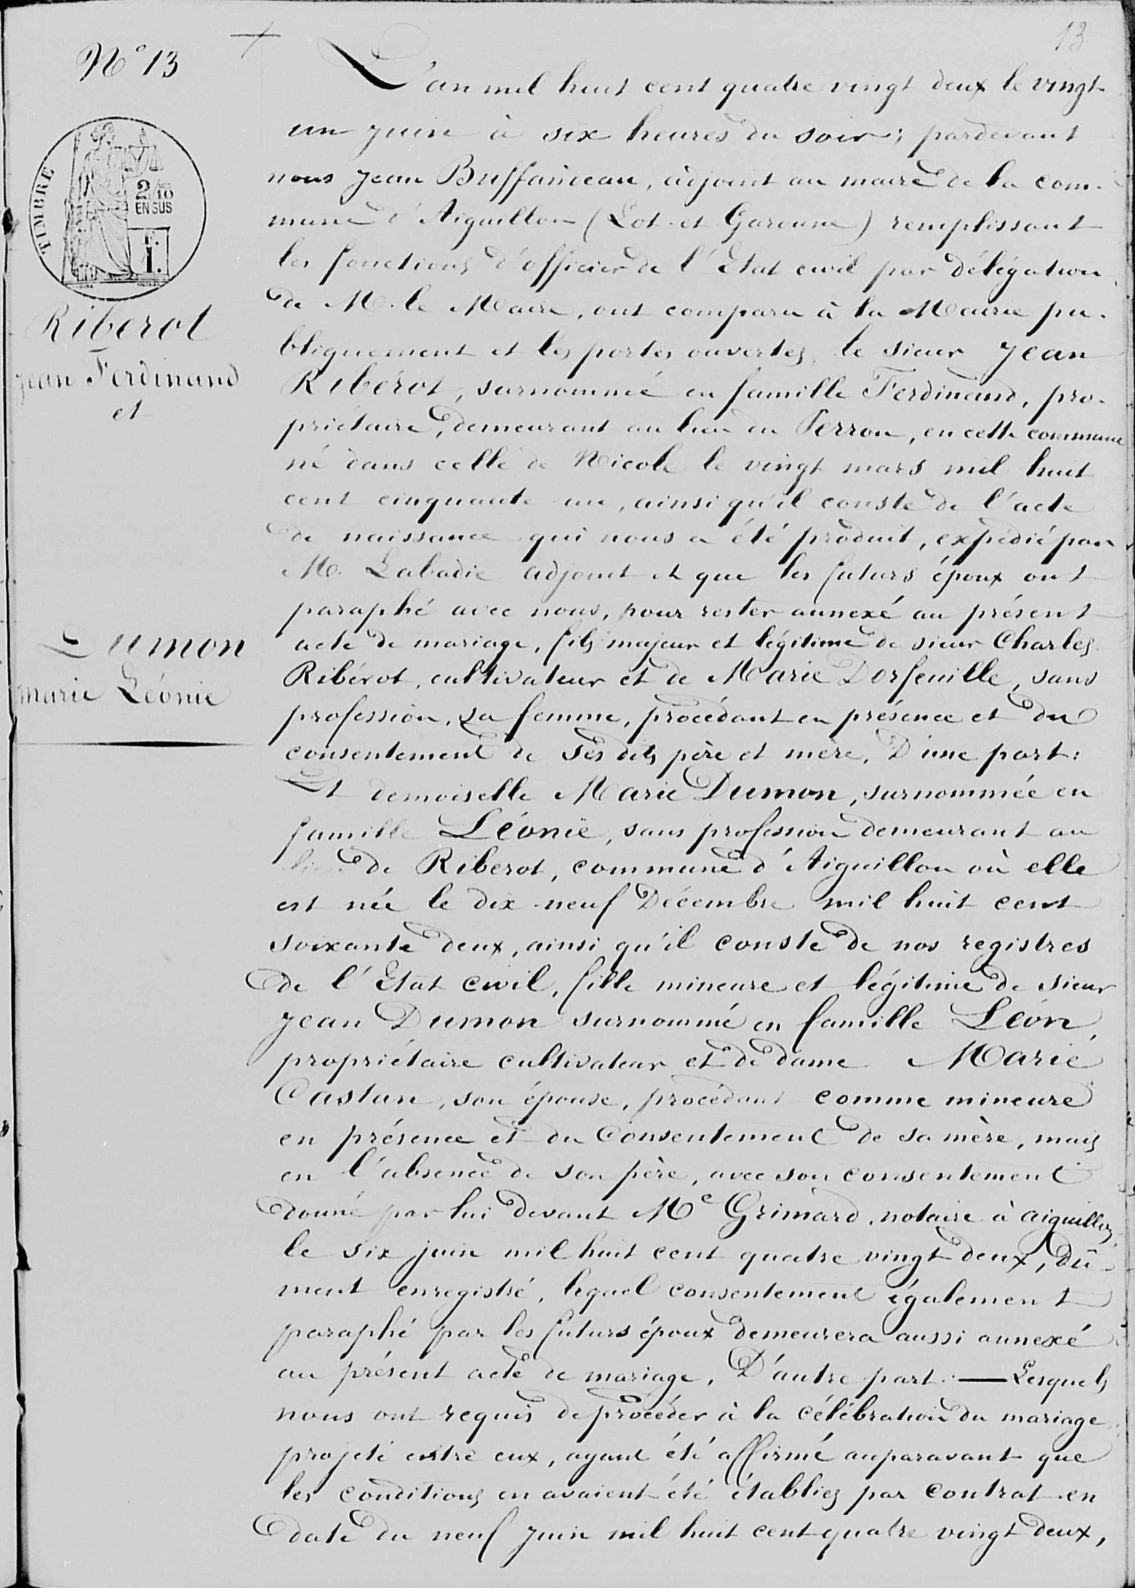 13
N° 13
TIMBRE
2/10
EN SUS
F.
1.
Riberot
Jean Ferdinand
et
Dumon
marie Léonie
L'an mil huit cent quatre vingt deux le vingt
un juin à six heures du soir, pardevant
nous Jean Buffaniceau, adjoint au maire de la com-
mune d'Aiguillon (Lot-et-Garonne) remplissant
les fonctions d'officier de l'Etat civil par délégation
de M. le Maire, ont comparu à la Mairie pu-
bliquement et les portes ouvertes, le sieur Jean
Ribérot, surnommé en famille Ferdinand, pro-
priétaire, demeurant au lieu du Perron, en cette commune
né dans celle de Nicole le vingt mars mil huit
cent cinquante un, ainsi qu'il conste de l'acte
de naissance qui nous a été produit, expédié par
M. Labadie adjoint et que les futurs époux ont
paraphé avec nous, pour rester annexé au présent
acte de mariage, fils majeur et légitime de sieur Charles
Ribérot, cultivateur et de Marie Dorfeuille, sans
profession, sa femme, procédant en présence et du
consentement de ses dits père et mère, D'une part:
Et demoiselle Marie Dumon, surnommée en
famille Léonie, sans profession demeurant au
lieu de Riberot, commune d'Aiguillon où elle
est née le dix neuf Décembre mil huit cent
soixante deux, ainsi qu'il conste de nos registres
de l'Etat civil, fille mineure et légitime de sieur
Jean Dumon surnommé en famille Léon,
propriétaire cultivateur et de dame Marie
Castan, son épouse, procédant comme mineure
en présence et du consentement de sa mère, mais
en l'absence de son père, avec son consentement
donné par lui devant Me Grimard, notaire à aiguillon,
le six juin mil huit cent quatre vingt deux, dû-
ment enregistré, lequel consentement également
paraphé par les futurs époux demeurera aussi annexé
au présent acte de mariage, D'autre part. — Lesquels
nous ont requis de procéder à la célébration du mariage
projeté entre eux, ayant été affirmé auparavant que
les conditions en avaient été établies par contrat en
date du neuf juin mil huit cent quatre vingt deux,